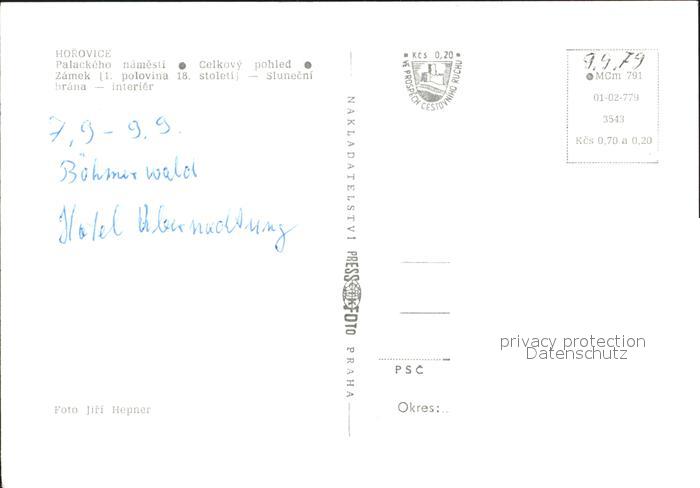 HOŘOVICE
Palackého náměstí ● Celkový pohled ●
Zámek [1. polovina 18. století] — Sluneční
brána — interiér
7.9 - 9.9.
Böhmerwald
Hotel Übernachtung
Foto Jiří Hepner
NAKLADATELSTVÍ PRESSFOTO PRAHA
Kčs 0,20
VE PROSPĚCH CESTOVNÍHO RUCHU
9.9.79
●MCm 791
01-02-779
3543
Kčs 0,70 a 0,20
privacy protection
Datenschutz
PSČ
Okres:..